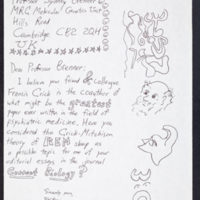 Professor Sydney Brenner
MRC Molecular Genetics Unit
Hills Road
Cambridge CB2 2QH
UK
Dear Professor Brenner:
I believe your friend & colleague
Francis Crick is the coauthor of
what might be the greatest
paper ever written in the field of
psychiatric medicine. Have you
considered the Crick-Mitchison
theory of REM sleep as
a possible topic for one of your
editorial essays in the journal
Current Biology?